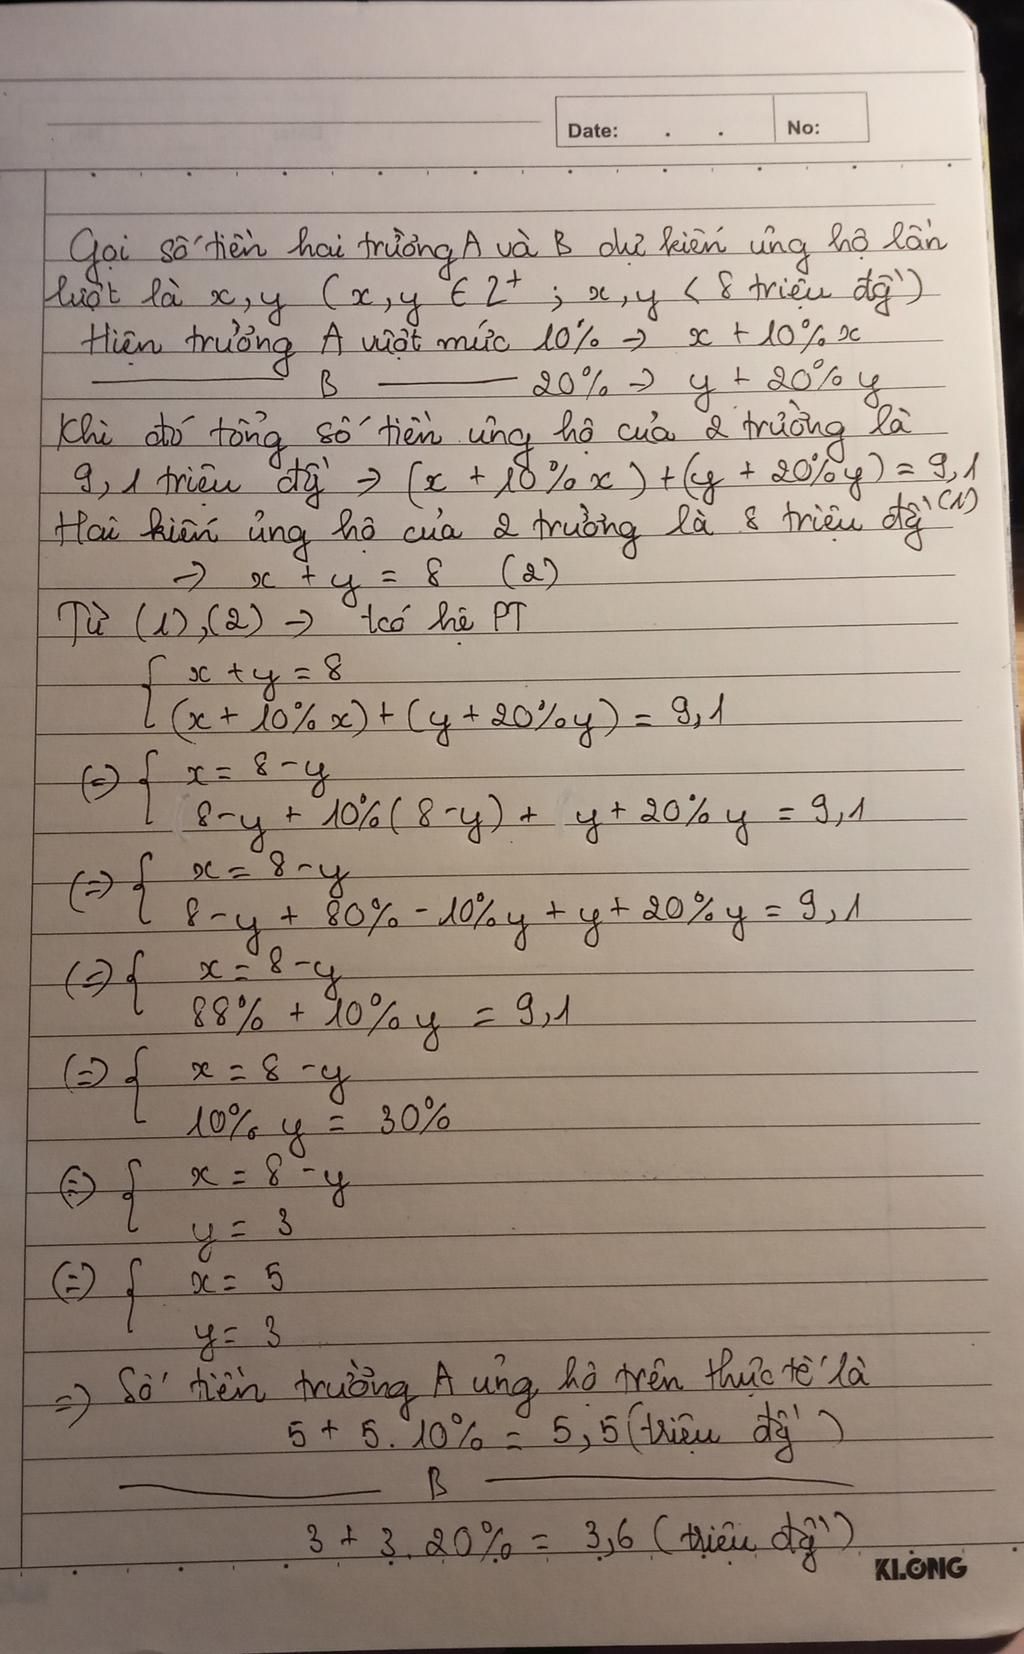 Date: . .
No:
Gọi số tiền hai trường A và B dự kiến ủng hộ lần
lượt là x, y ( x, y ∈ Z⁺ ; x, y < 8 triệu đg̀ )
Hiện trường A vượt mức 10% → x + 10% x
——— B ——— 20% → y + 20% y
Khi đó tổng số tiền ủng hộ của 2 trường là
9,1 triệu đg̀ → (x + 10% x) + (y + 20% y) = 9,1 (1)
Hai kiến ủng hộ của 2 trường là 8 triệu đg̀
→ x + y = 8 (2)
Từ (1), (2) → tcó hệ PT
{ x + y = 8
(x + 10% x) + (y + 20% y) = 9,1
(=) { x = 8 - y
8 - y + 10% ( 8 - y) + y + 20% y = 9,1
(=) { x = 8 - y
8 - y + 80% - 10% y + y + 20% y = 9,1
(=) { x = 8 - y
88% + 10% y = 9,1
(=) { x = 8 - y
10% y = 30%
(=) { x = 8 - y
y = 3
(=) { x = 5
y = 3
=) Số tiền trường A ủng hộ trên thực tế là
5 + 5. 10% = 5,5 (triệu đg̀ )
——— B ———
3 + 3. 20% = 3,6 (triệu đg̀ )
KLONG